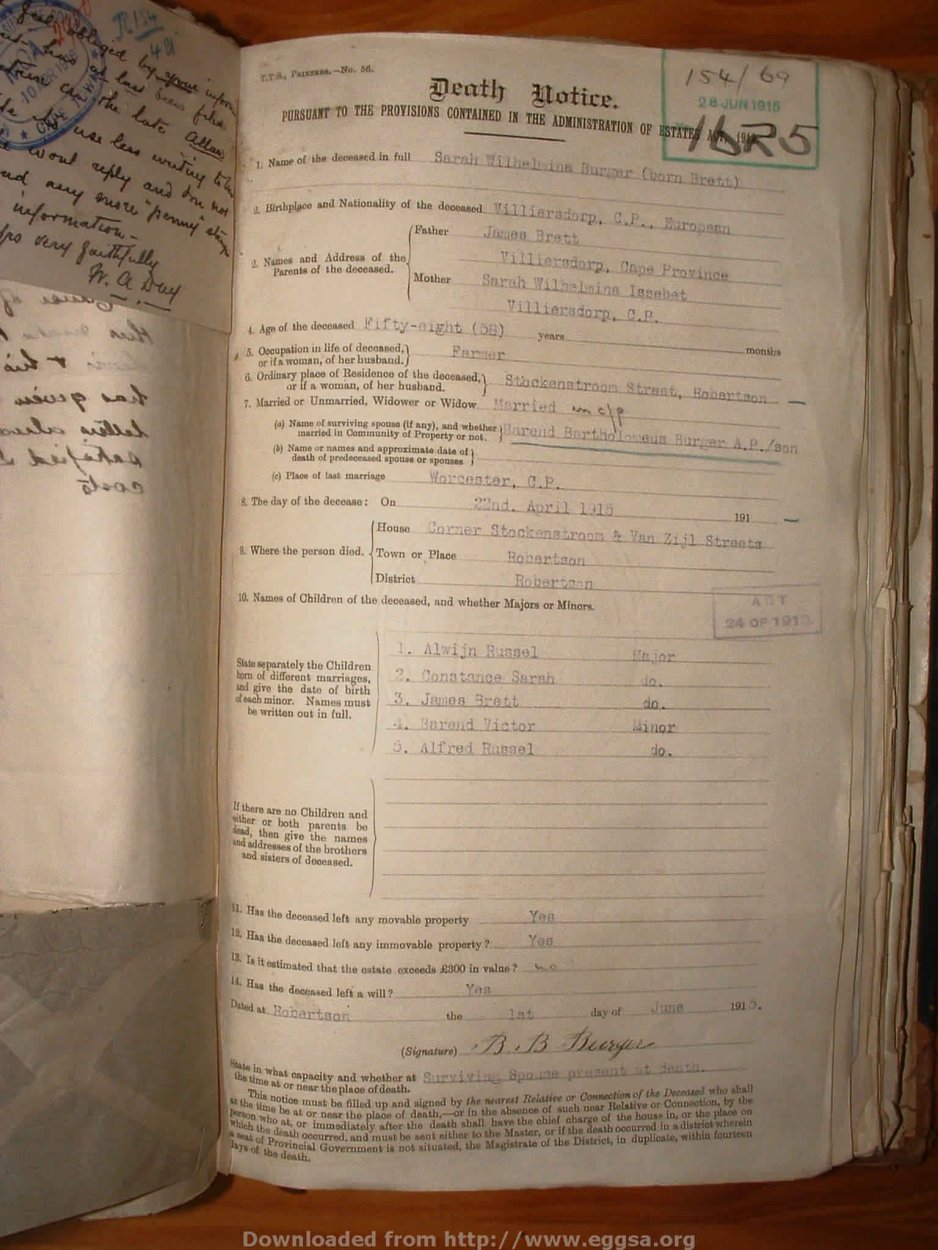 just obliged by your inform
has at last been filed
in the late Allan
use less writing to him
wont reply and I do not
any more "penny" stamps
information -
yrs very faithfully
W. A. Day
T.T.S., PRINTERS.—No. 56.
154/69
28 JUN 1915
1625
Death Notice.
PURSUANT TO THE PROVISIONS CONTAINED IN THE ADMINISTRATION OF ESTATES ACT, 191
1. Name of the deceased in full Sarah Wilhelmina Burger (born Brett)
2. Birthplace and Nationality of the deceased Villiersdorp, C.P., European
3. Names and Address of the Parents of the deceased.
Father James Brett
Villiersdorp, Cape Province
Mother Sarah Wilhelmina Issebet
Villiersdorp, C.P.
4. Age of the deceased Fifty-eight (58) years months
5. Occupation in life of deceased, or if a woman, of her husband. Farmer
6. Ordinary place of Residence of the deceased, or if a woman, of her husband. Stockenstroom Street, Robertson
7. Married or Unmarried, Widower or Widow Married in c/p
(a) Name of surviving spouse (if any), and whether married in Community of Property or not. Barend Bartholomeus Burger A.P./son
(b) Name or names and approximate date of death of predeceased spouse or spouses
(c) Place of last marriage Worcester, C.P.
8. The day of the decease: On 22nd. April 1915 191
9. Where the person died.
House Corner Stockenstroom & Van Zijl Streets
Town or Place Robertson
District Robertson
10. Names of Children of the deceased, and whether Majors or Minors.
ACT
24 OF 1913.
State separately the Children
born of different marriages,
and give the date of birth
of each minor. Names must
be written out in full.
1. Alwijn Russel Major
2. Constance Sarah do.
3. James Brett do.
4. Barend Victor Minor
5. Alfred Russel do.
If there are no Children and
either or both parents be
dead, then give the names
and addresses of the brothers
and sisters of deceased.
11. Has the deceased left any movable property Yes
12. Has the deceased left any immovable property? Yes
13. Is it estimated that the estate exceeds £300 in value?
14. Has the deceased left a will? Yes
Dated at Robertson the 1st day of June 1915.
(Signature) B. B. Burger
State in what capacity and whether at
the time at or near the place of death. Surviving Spouse present at death.
This notice must be filled up and signed by the nearest Relative or Connection of the Deceased who shall
at the time be at or near the place of death,—or in the absence of such near Relative or Connection, by the
person who at, or immediately after the death shall have the chief charge of the house in, or the place on
which the death occurred, and must be sent either to the Master, or if the death occurred in a district wherein
a seat of Provincial Government is not situated, the Magistrate of the District, in duplicate, within fourteen
days of the death.
Downloaded from http://www.eggsa.org